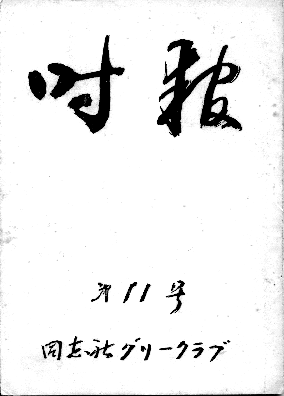 时報
第11号
同志社グリークラブ